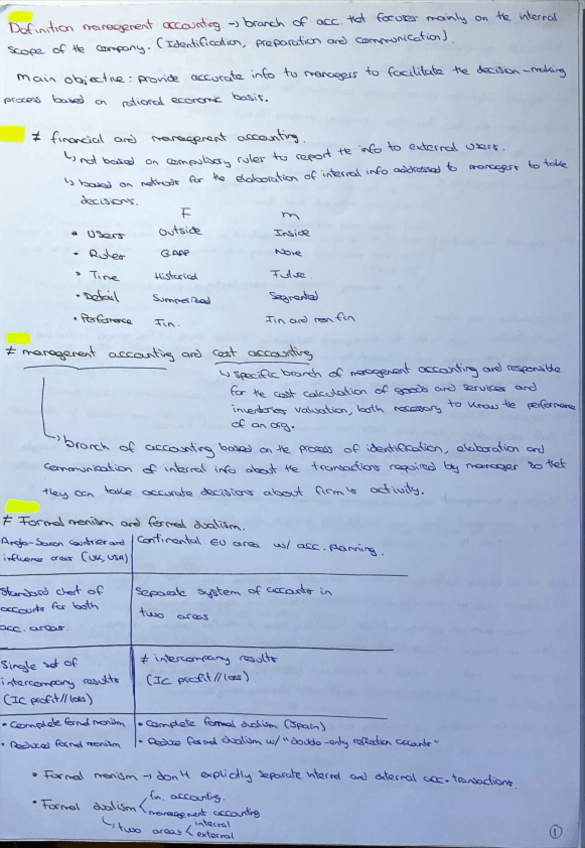 Definition management accounting → branch of acc that focuses mainly on the internal
scope of the company. (Identification, preparation and communication).
Main objective: provide accurate info to managers to facilitate the decision-making
process based on rational economic basis.
≠ financial and management accounting.
↳ not based on compulsory rules to report the info to external users.
↳ based on methods for the elaboration of internal info addressed to managers to take
decisions.
F m
• Users Outside Inside
• Rules GAAP None
• Time Historical Future
• Detail Summarized Segmented
• Performance Fin. Fin and non fin
≠ management accounting and cost accounting
↳ specific branch of management accounting and responsible
for the cost calculation of goods and services and
inventories valuation, both necessary to know the performance
of an org.
↳ branch of accounting based on the process of identification, elaboration and
communication of internal info about the transactions required by manager so that
they can take accurate decisions about firm's activity.
≠ Formal monism and formal dualism.
Anglo-Saxon countries and
influence areas (UK, USA)
Continental EU area w/ acc. planning.
Standard chart of
accounts for both
acc. areas.
Separate system of accounts in
two areas
Single set of
intercompany results
(IC profit//loss)
≠ intercompany results
(IC profit//loss)
• Complete formal monism
• Reduced formal monism
• Complete formal dualism (Spain)
• Reduce formal dualism w/ "double-entry reflection accounts"
• Formal monism → don't explicitly separate internal and external acc. transactions.
• Formal dualism < fin. accounting.
management accounting
↳ two areas < internal
external
1